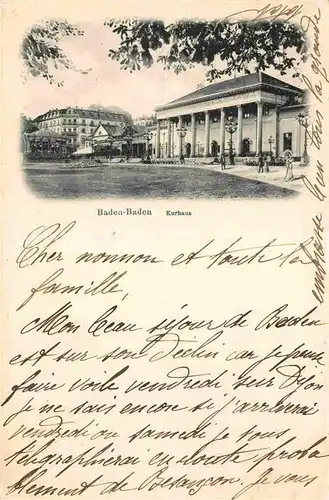 Baden-Baden Kurhaus
Cher nonnon et toute la
famille,
Mon beau séjour de Baden
est sur son déclin car je pense
faire voile vendredi sur Dijon
je ne sais encore si j'arriverai
vendredi ou samedi je vous
télégraphierai en route proba
blement de Besançon. Je vous
embrasse bien tous la grande